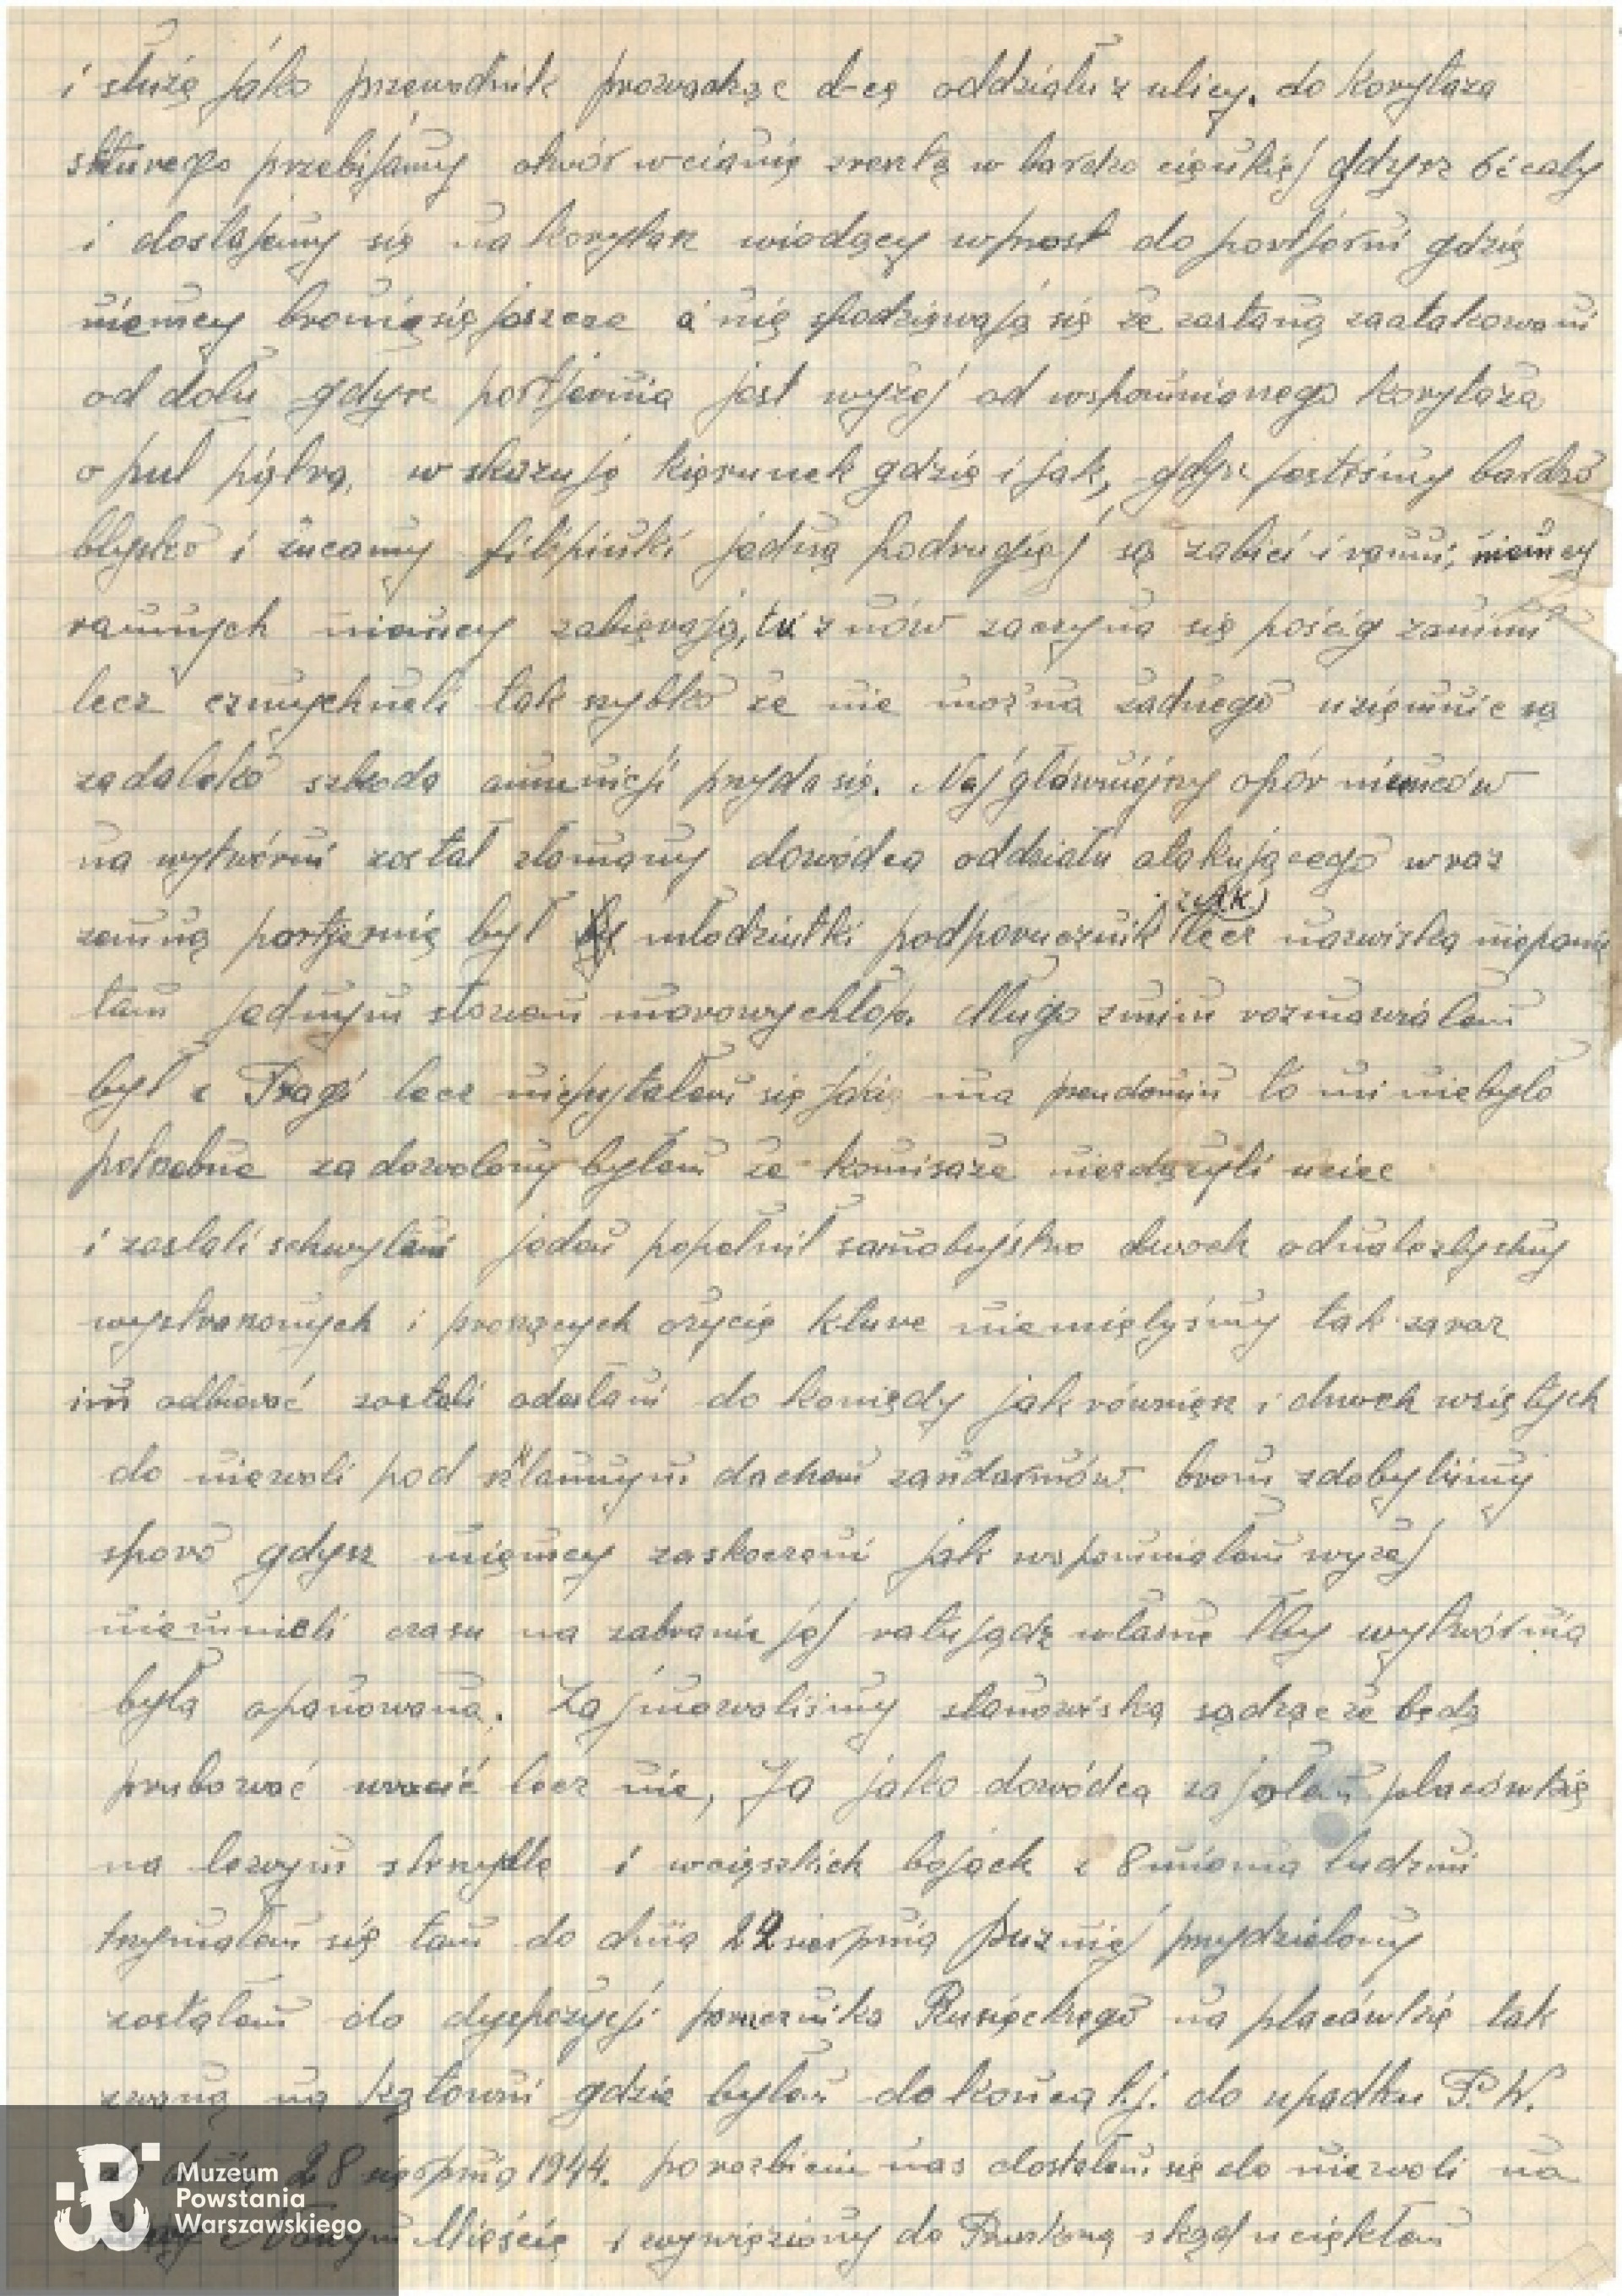 i służę jako przewodnik prowadząc d-cę oddziału z ulicy. do korytaza
skturego przebijamy otwór wcianię zresztą w bardzo cięnkięj gdysz 6 i cały
i dostajemy się na korytarz wiodący wprost do portjerni gdzię
niemcy bronią się jeszcze a nię spodzięwają się że zastaną zaatakowani
od dołu gdysz portjernia jest wyżej od wspomnianego korytaza
o puł piętra, wskazuję kięrunek gdzię i jak, gdysz jesteśmy bardzo
blysko i żucamy filipinki jedną podrugięj są zabici i ranni, niemcy
rannych niemcy zabięrają, tu znów zaczyna się pościg zanimi
lecz czmychneli tak szybko że nie można żadnego uziemnic są
zadaleko szkoda amunicji przyda się. Najgłówniejszy opór niemców
na wytwórni został złamany dowódcą oddziału atakującego wraz
zemną portjernię był młodziutki podporucznik z AK) lecz nazwiska niepamię
tam jednym słowem morowychłop. Długo znim rozmawiałem
był z Pragi lecz niepytałem się jakię ma pseudonim to mi niebyło
potrzebne zadowolony byłem że komisaze niezdążyli uciec
i zostali schwytani jeden popełnił samobujstwo dwoch odnalezlyśmy
wystraszonych i proszących ożycię kture niemięlyśmy tak zaraz
im odbierać zostali odesłani do komędy jak równięsz i dwoch wziętych
do niewoli pod szklannym dachem żandarmów. broni zdobyliśmy
sporo gdysz niemcy zaskoczeni jak wspomniałem wyżej
niemieli czasu na zabranie jej ratujądz własne łby wytwórnia
była opanowana. Zajmowaliśmy stanowiska sądząc że będą
prubować wrócić lecz nie, Ja jako dowódca zająłem placówkię
na lewym skrzydle i wcięszkich bojach z 8mioma ludzmi
trzymałem się tam do dnia 22 sierpnia puzniej przydzielony
zostałem do dyspozycji porucznika Rusięckiego na placówkię tak
zwaną na kątowni gdzie byłem do końca t.j. do upadku P.W.
do dnia 28 sięrpnia 1944. porozbiciu nas dostałem się do niewoli na
Nowym Mięścię i wywięziony do Pruskowa skąd ucięktem